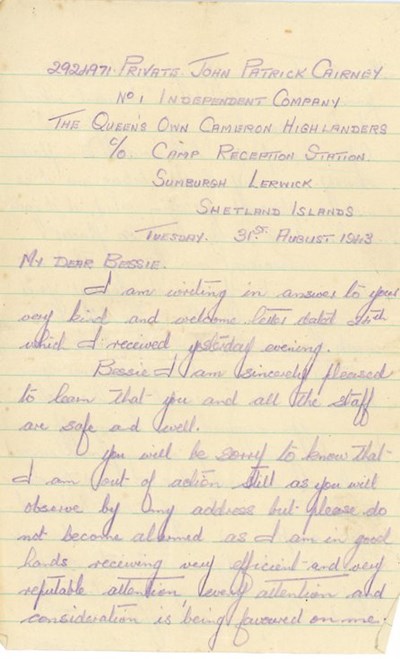 2924971 PRIVATE JOHN PATRICK CAIRNEY
No 1 INDEPENDENT COMPANY
THE QUEEN'S OWN CAMERON HIGHLANDERS
c/o CAMP RECEPTION STATION.
SUMBURGH LERWICK
SHETLAND ISLANDS
TUESDAY. 31ST AUGUST 1943
MY DEAR BESSIE.
I am writing in answer to your
very kind and welcome letter dated 24th
which I received yesterday evening.
Bessie I am sincerely pleased
to learn that you and all the staff
are safe and well.
you will be sorry to know that
I am out of action still as you will
observe by my address but please do
not become alarmed as I am in good
hands receiving very efficient and very
reputable attention every attention and
consideration is being favoured on me.